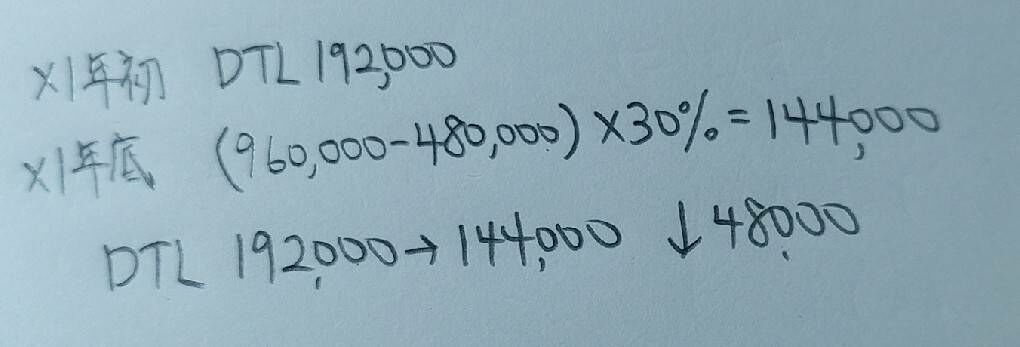 X1年初 DTL 192,000
X1年底 (960,000-480,000)×30%=144,000
DTL 192,000→144,000 ↓48,000